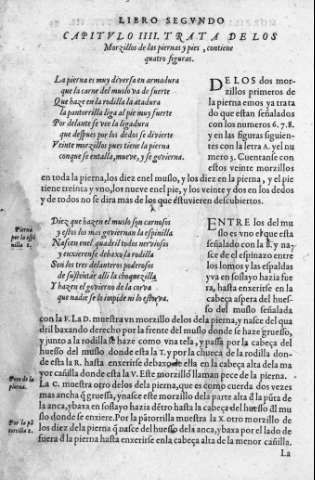 LIBRO SEGVNDO
CAPITVLO IIII. TRATA DE LOS
Morzillos de las piernas y pies, contiene
quatro figuras.
La pierna es muy diversa en armadura
que la carne del muslo va de fuerte
Que haze en la rodilla la atadura
la pantorrilla liga al pie muy fuerte
Por delante se vee la ligadura
que despues por los dedos se divierte
Veinte morzillos pues tiene la pierna
conque se entalla, mueve, y se govierna.
DE LOS dos mor-
zillos primeros de
la pierna emos ya trata
do que estan señalados
con los numeros 6.7.8.
y en las figuras siguien-
tes con la letra A. y el nu
mero 3. Cuentanse con
estos veinte morzillos
en toda la pierna, los diez enel muslo, y los diez en la pierna, y el pie
tiene treinta y vno, los nueve enel pie, y los veinte y dos en los dedos
y de todos no se dira mas de los que estuvieren descubiertos.
Diez que hazen el muslo son carnosos
y estos los mas goviernan la espinilla
Nascen enel quadril todos nerviosos
y enxierense debaxo la rodilla
Son los tres delanteros poderosos
de sustentar alli la choquezilla
Y hazen el govierno de la corva
que nadie se lo impide ni lo estorva.
Pierna
por la espi
nilla 1.
ENTRE los del mu
slo es vno el que esta
señalado con la E. y nas-
ce de el espinazo entre
los lomos y las espaldas
y va en soslayo hazia fue
ra, hasta enxerirse en la
cabeça aspera del hues-
so del muslo señalada
con la F. La D. muestra vn morzillo delos dela pierna, y nasce del qua
dril baxando derecho por la frente del muslo donde se haze gruesso,
y junto a la rodilla se haze como vna tela, y passa por la cabeça del
huesso del muslo donde esta la T. y por la chueca de la rodilla don-
de esta la R. hasta enxerirse debaxo de ella en la cabeça alta dela ma
yor cañilla donde esta la V. Este morzillo llaman pece de la pierna.
Pece de la
pierna.
La C. muestra otro delos dela pierna, que es como cuerda dos vezes
mas ancha q̃ gruessa, ynasce este morzillo dela parte alta d̃la punta de
la anca, ybaxa en soslayo hazia dẽtro hasta la cabeça del huesso d̃l mu
slo donde se enxiere. Por la pãtorrilla muestra la X. otro morzillo de
Por la pã
torrilla 2.
los diez dela pierna q̃ nasce del huesso dela anca, ybaxa por el lado de
fuera d̃ la pierna hasta enxerirse enla cabeça alta de la menor cañilla.
La